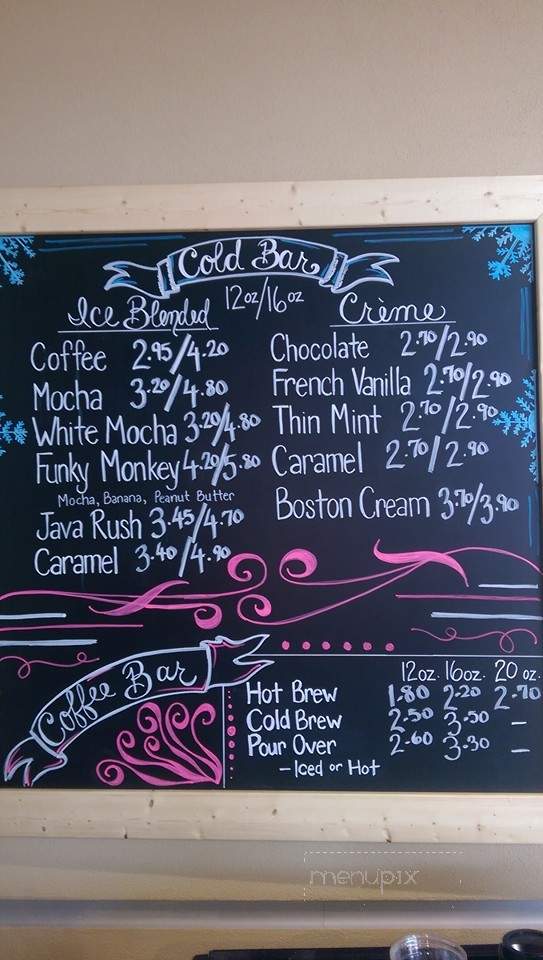 Cold Bar
12oz/16oz
Ice Blended
Coffee 2.95/4.20
Mocha 3.20/4.80
White Mocha 3.20/4.80
Funky Monkey 4.20/5.80
Mocha, Banana, Peanut Butter
Java Rush 3.45/4.70
Caramel 3.40/4.90
Crème
Chocolate 2.70/2.90
French Vanilla 2.70/2.90
Thin Mint 2.70/2.90
Caramel 2.70/2.90
Boston Cream 3.70/3.90
Coffee Bar
12oz. 16oz. 20 oz.
Hot Brew 1.80 2.20 2.70
Cold Brew 2.50 3.50 -
Pour Over 2.60 3.30 -
- Iced or Hot
menupix